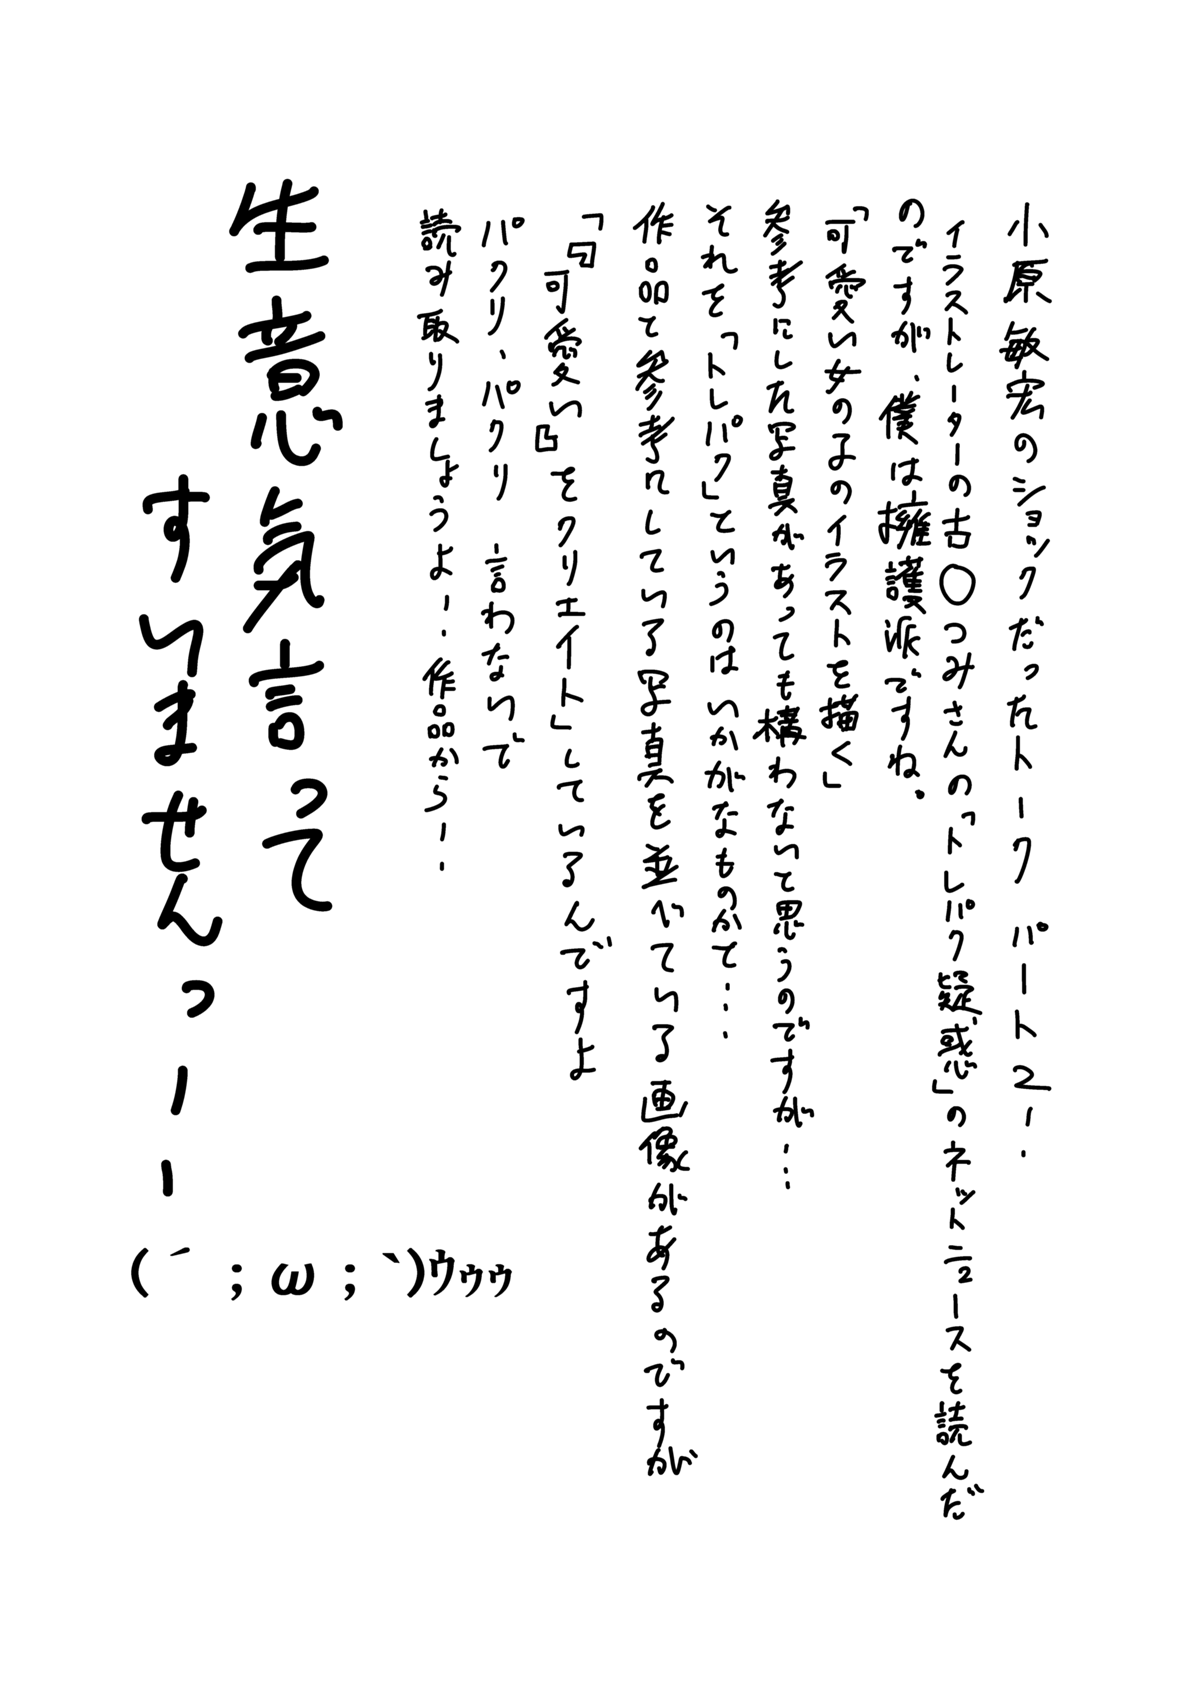 小原敏宏のショックだったトーク パート2！
イラストレーターの古〇つみさんの「トレパク疑惑」のネットニュースを読んだ
のですが、僕は擁護派ですね。
「可愛い女の子のイラストを描く」
参考にした写真があっても構わないと思うのですが…
それを「トレパク」というのはいかがなものかと…
作品と参考にしている写真を並べている画像があるのですが
「『可愛い』をクリエイト」しているんですよ
パクリ、パクリ 言わないで
読み取りましょうよ！作品から！
生意気言って
すいませんっ！！
(´；ω；`)ｳｩｩ